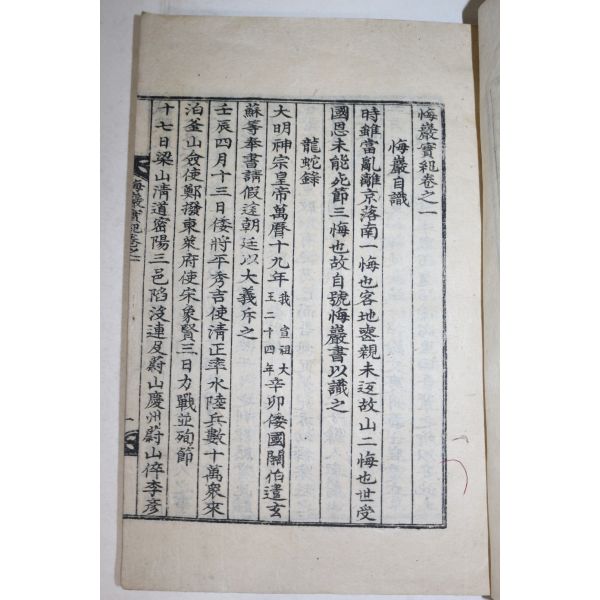 悔巖實紀卷之一
悔巖自識
時雖當亂離京落南一悔也客地窆親未返故山二悔也世受
國恩未能死節三悔也故自號悔巖書以識之
龍蛇錄
大明神宗皇帝萬曆十九年我 宣祖大王二十四年辛卯倭國關伯遣玄
蘇等奉書請假途朝廷以大義斥之
壬辰四月十三日倭將平秀吉使淸正率水陸兵數十萬衆來
泊釜山僉使鄭撥東萊府使宋象賢三日力戰並殉節
十七日梁山清道密陽三邑陷沒連及蔚山慶州蔚山倅李彦
悔巖實紀卷之一
一